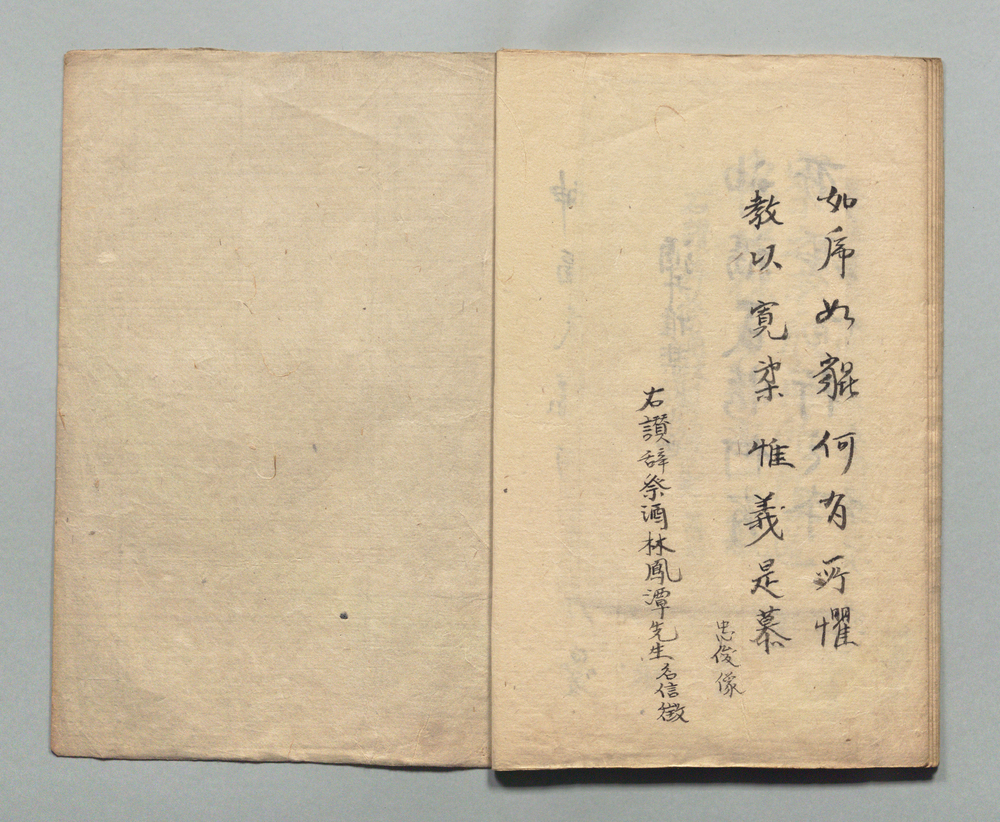 如乕如貔何有所懼
教以寛柔惟義是慕
忠俊像
右讃辞祭酒林鳳潭先生名信徴